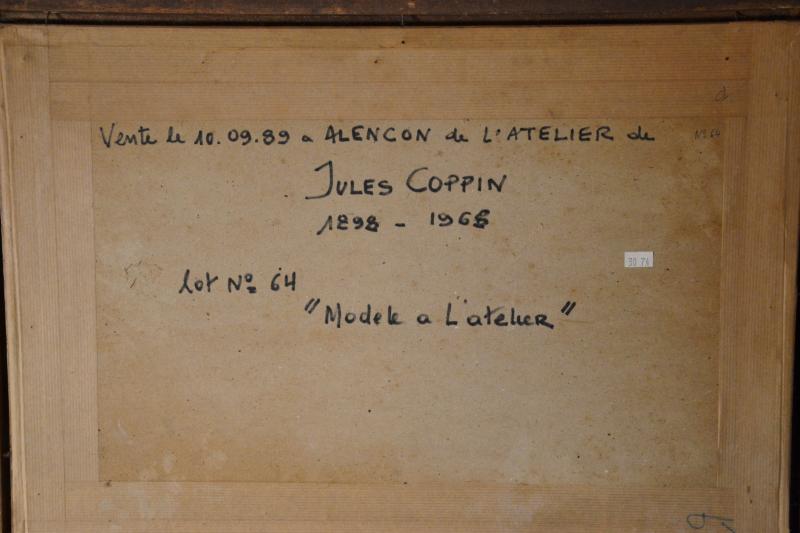 Vente le 10.09.89 a ALENCON de L'ATELIER de
No 64
JULES COPPIN
1898 - 1968
30 74
lot No 64
"Modele a L'atelier"